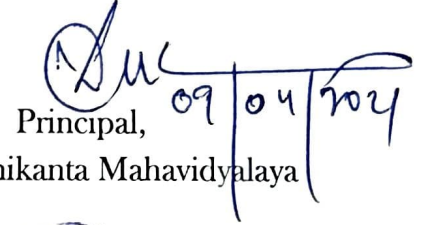 09/04/2021
Principal,
nikanta Mahavidyalaya